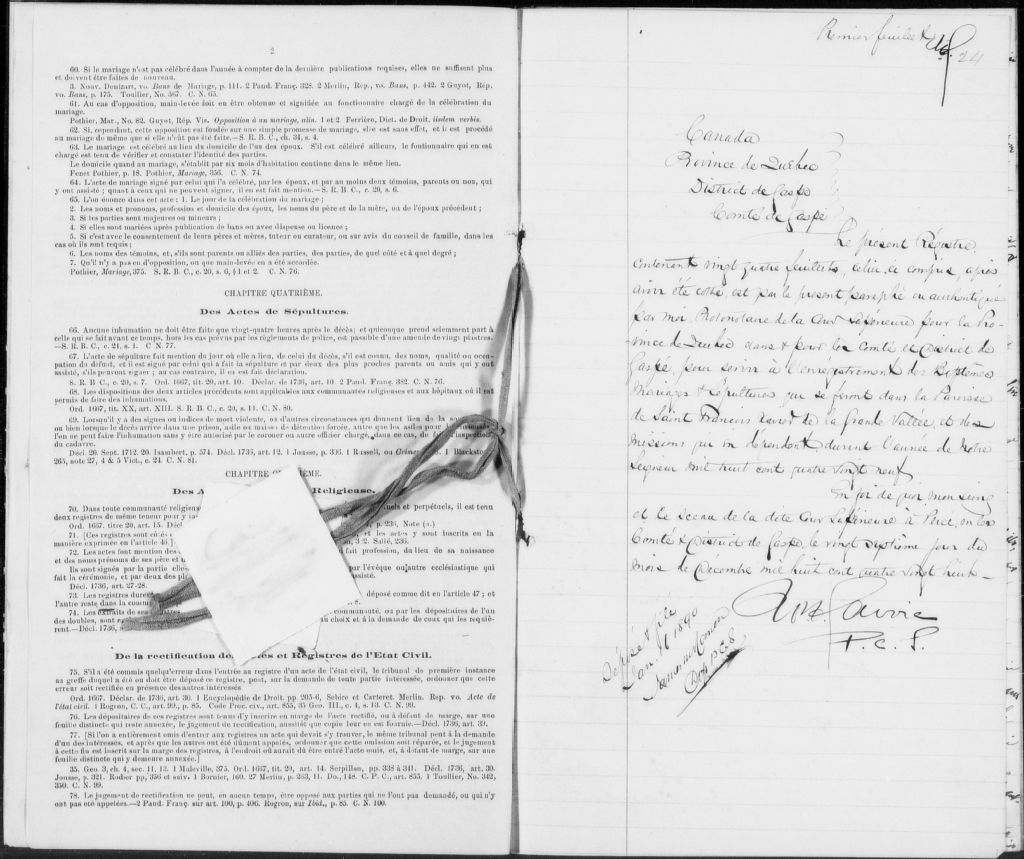 2
60. Si le mariage n'est pas célébré dans l'année à compter de la dernière publications requises, elles ne suffisent plus
et doivent être faites de nouveau.
3. Nouv. Denizart, vo. Bans de Mariage, p. 111. 2 Pand. Franç. 328. 2 Merlin, Rép., vo. Bans, p. 442. 2 Guyot, Rép.
vo. Bans, p. 175. Toullier, No. 567. C. N. 65.
61. Au cas d'opposition, main-levée doit en être obtenue et signifiée au fonctionnaire chargé de la célébration du
mariage.
Pothier, Mar., No. 82. Guyot, Rép. Vis. Opposition à un mariage, alin. 1 et 2. Ferrière, Dict. de Droit, iisdem verbis.
62. Si, cependant, cette opposition est fondée sur une simple promesse de mariage, elle est sans effet, et il est procédé
au mariage de même que si elle n'eût pas été faite.—S. R. B. C., ch. 34, s. 4.
63. Le mariage est célébré au lieu du domicile de l'un des époux. S'il est célébré ailleurs, le fontionnaire qui en est
chargé est tenu de vérifier et constater l'identité des parties.
Le domicile quant au mariage, s'établit par six mois d'habitation continue dans le même lieu.
Fenet Pothier, p. 18. Pothier, Mariage, 356. C. N. 74.
64. L'acte de mariage signé par celui qui l'a célébré, par les époux, et par au moins deux témoins, parents ou non, qui
y ont assisté ; quant à ceux qui ne peuvent signer, il en est fait mention.—S. R. B. C., c. 20, s. 6.
65. L'on énonce dans cet acte : 1. Le jour de la célébration du mariage ;
2. Les noms et pronoms, profession et domicile des époux, les noms du père et de la mère, ou de l'époux précédent ;
3. Si les parties sont majeures ou mineurs ;
4. Si elles sont mariées après publication de bans ou avec dispense ou licence ;
5. Si c'est avec le consentement de leurs pères et mères, tuteur ou curateur, ou sur avis du conseil de famille, dans les
cas où ils sont requis ;
6. Les noms des témoins, et, s'ils sont parents ou alliés des parties, des parties, de quel côté et à quel degré ;
7. Qu'il n'y a pas eu d'opposition, ou que main-levée en a été accordée.
Pothier, Mariage, 375. S. R. B. C., c. 20, s. 6, § 1 et 2. C. N. 76.
CHAPITRE QUATRIÈME.
Des Actes de Sépultures.
66. Aucune inhumation ne doit être faite que vingt-quatre heures après le décès ; et quiconque prend sciemment part à
celle qui se fait avant ce temps, hors les cas prévus par les règlements de police, est passible d'une amende de vingt piastres.
—S. R. B. C., c. 21, s. 1. C N. 77.
67. L'acte de sépulture fait mention du jour où elle a lieu, de celui du décès, s'il est connu, des noms, qualité ou occu-
pation du défunt, et il est signé par celui qui a fait la sépulture et par deux des plus proches parents ou amis qui y ont
assisté, s'ils peuvent signer ; au cas contraire, il en est fait déclaration.
S. R. B C., c. 20, s. 7. Ord. 1667, tit. 20, art. 10. Déclar. de 1736, art. 10 2 Pand. Franç. 382. C. N. 76.
68. Les dispositions des deux articles précédents sont applicables aux communautés religieuses et aux hôpitaux où il est
permis de faire des inhumations.
Ord. 1667, tit. XX, art. XIII. S. R. B. C., c. 20, s. 11. C. N. 80.
69. Lorsqu'il y a des signes ou indices de mort violente, ou d'autres circonstances qui donnent lieu de la
ou bien lorsque le décès arrive dans une prison, asile ou maison de détention forcée, autre que les asiles pour
l'on ne peut faire l'inhumation sans y être autorisé par le coroner ou autre officier chargé, dans ce cas, de l'inspection
du cadavre.
Décl. 20. Sept. 1712. 20. Isambert, p. 574. Décl. 1736, art. 12. 1 Jousse, p. 336. 1 Russell, ou Crimes 1 Blackstone
265, note 27, 4 & 5 Vict., c. 24. C. N. 81.
CHAPITRE
Des A Religieuse.
70. Dans toute communauté religieuse
deux registres de même teneur pour y et perpétuels, il est tenu
Ord. 1667. titre 20, art. 15. Décl p. 236, Note (a.)
71. [Ces registres sont cotés et les actes y sont inscrits en la
manière exprimée en l'article 46.] 3 2. Sallé, 236.
72. Les actes font mention des fait profession, du lieu de sa naissance
et des noms prénoms de ses père et
Ils sont signés par la partie elle- par l'évêque ou autre ecclésiastique qui
fait la cérémonie, et par deux des pl assisté.
Décl. 1736, art. 27-28.
73. Les registres durent déposé comme dit en l'article 47 ; et
l'autre reste dans la commu
74. Les extraits de ses communauté, ou par les dépositaires de l'un
des doubles, sont au choix et à la demande de ceux qui les requiè-
rent.—Décl. 1736,
De la rectification de tes et Registres de l'Etat Civil.
75. S'il a été commis quelqu'erreur dans l'entrée au registre d'un acte de l'état civil, le tribunal de première instance
au greffe duquel a été ou doit être déposé ce registre, peut, sur la demande de toute partie intéressée, ordonner que cette
erreur soit rectifiée en présence des autres intéressés
Ord. 1667. Déclar. de 1736, art. 30. 1 Encyclopédie de Droit. pp. 205-6, Sebire et Carteret. Merlin. Rep. vo. Acte de
l'état civil. 1 Rogron, C. C., art. 99., p. 85. Code Proc. civ., art. 855, 35 Geo. III., c. 4, s. 13. C. N. 99.
76. Les dépositaires de ces registres sont tenus d'y inscrire en marge de l'acte rectifié, ou à défaut de marge, sur une
feuille distincte qui reste annexée, le jugement de rectification, aussitôt que copie leur en est fournie.—Décl. 1736, art. 30.
77. [Si l'on a entièrement omis d'entrer aux registres un acte qui devait s'y trouver, le même tribunal peut à la demande
d'un des intéressés, et après que les autres ont été dûment appelés, ordonner que cette omission soit réparée, et le jugement
à cette fin est inscrit sur la marge des registres, à l'endroit où aurait dû être entré l'acte omis, et, à défaut de marge, sur une
feuille distincte qui y demeure annexée.]
35. Geo. 3, ch. 4, sec. 11. 13. 1 Maleville, 375. Ord. 1667, tit. 20, art. 14. Serpillon, pp. 338 à 341. Décl. 1736, art. 30.
Jousse, p. 321. Rodier pp, 356 et suiv. 1 Bornier, 160. 27 Merlin, p. 263, 11. Do., 148. C. P. C., art. 855. 1 Toullier, No. 342,
350. C. N. 99.
78. Le jugement de rectification ne peut, en aucun temps, être opposé aux parties qui ne l'ont pas demandé, ou qui n'y
ont pas été appelées.—2 Pand. Franç. sur art. 100, p. 406. Rogron, sur Ibid., p. 85. C. N. 100.
Premier feuillet
24
Canada
Province de Québec
District de Gaspé
Comté de Gaspé
Le présent Régistre
contenant vingt quatre feuillets, celui-ci compris, après
avoir été coté, est par le present paraphé ou authentiqué
par moi, Protonotaire de la Cour Supérieure pour la Pro-
vince de Quebec dans & pour les Comté et District de
Gaspé, pour servir à l'enregistrement des Baptemes
Mariages & Sépultures qui se feront dans la Paroisse
de Saint François Xavier de la Grande Vallée, et des
missions qui en dépendent durant l'année de Notre
Seigneur mil huit cent quatre vingt neuf.
En foi de quoi mon seing
et le sceau de la dite Cour Supérieure à Percé, en les
Comté & District de Gaspé, le vingt septieme jour du
mois de Decembre mil huit cent quatre vingt huit—
Lavoie
P. C. S.
Déposé & filé
Jan. 16 1890
Dep P.C.S